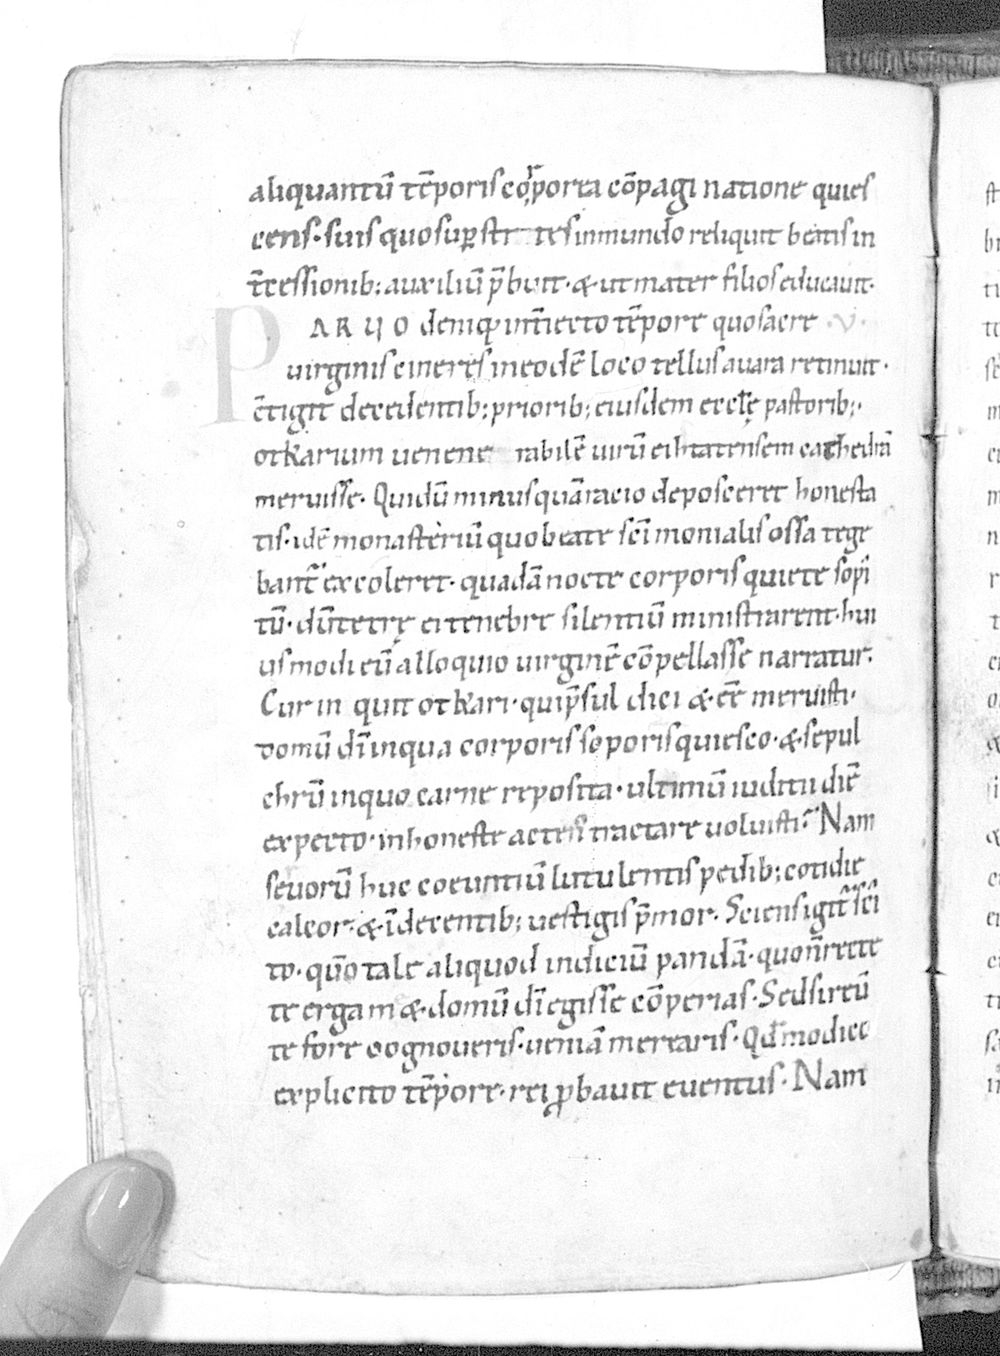 aliquantū tēporis corporea cōpagi natione quies
cens· suis quos suꝑstites inmundo reliquit beatis in
t̄cessionib; auxiliū p̄buit· & ut mater filios educauit·
PARUO deniq̨ int̄iecto tēpore quo sacre ·V·
uirginis cineres in eodē loco tellus auara retinuit·
c̄tigit decedentib; priorib; eiusdem eccl̄ę pastorib;·
otkarium uenene rabilē uirū eihtatensem cathedrā
meruisse· Quidū minus quā racio deposceret honesta
tis· idē monasteriū quo beate sc̄i monialis ossa tege
bant̄ excoleret· quadā nocte corporis quiete sopi
tū· dū tetrę ei tenebre silentiū ministrarent· hui
usmodi eū alloquio uirginē cōpellasse narratur.
Cur in quit otkari· qui p̄sul dici & eē meruisti·
domū dī inqua corporis soporis quiesco· & sepul
chrū inquo carne reposita· ultimū iuditii diē
expecto· inhoneste actens tractare uoluisti? Nam
seuorū huc coeuntiū lutulentis pedib; cotidie
calcor· & īdecentib; uestigis p̄mor. Sciens igit̄ sci
to· qūo tale aliquod indiciū pandā· quo n̄ recte
te erga m & domū dī egisse cōperias· Sed si reū
te fore cognoueris· ueniā merearis· Qd̄ modico
explicito tēpore· rei ꝓbauit euentus· Nam